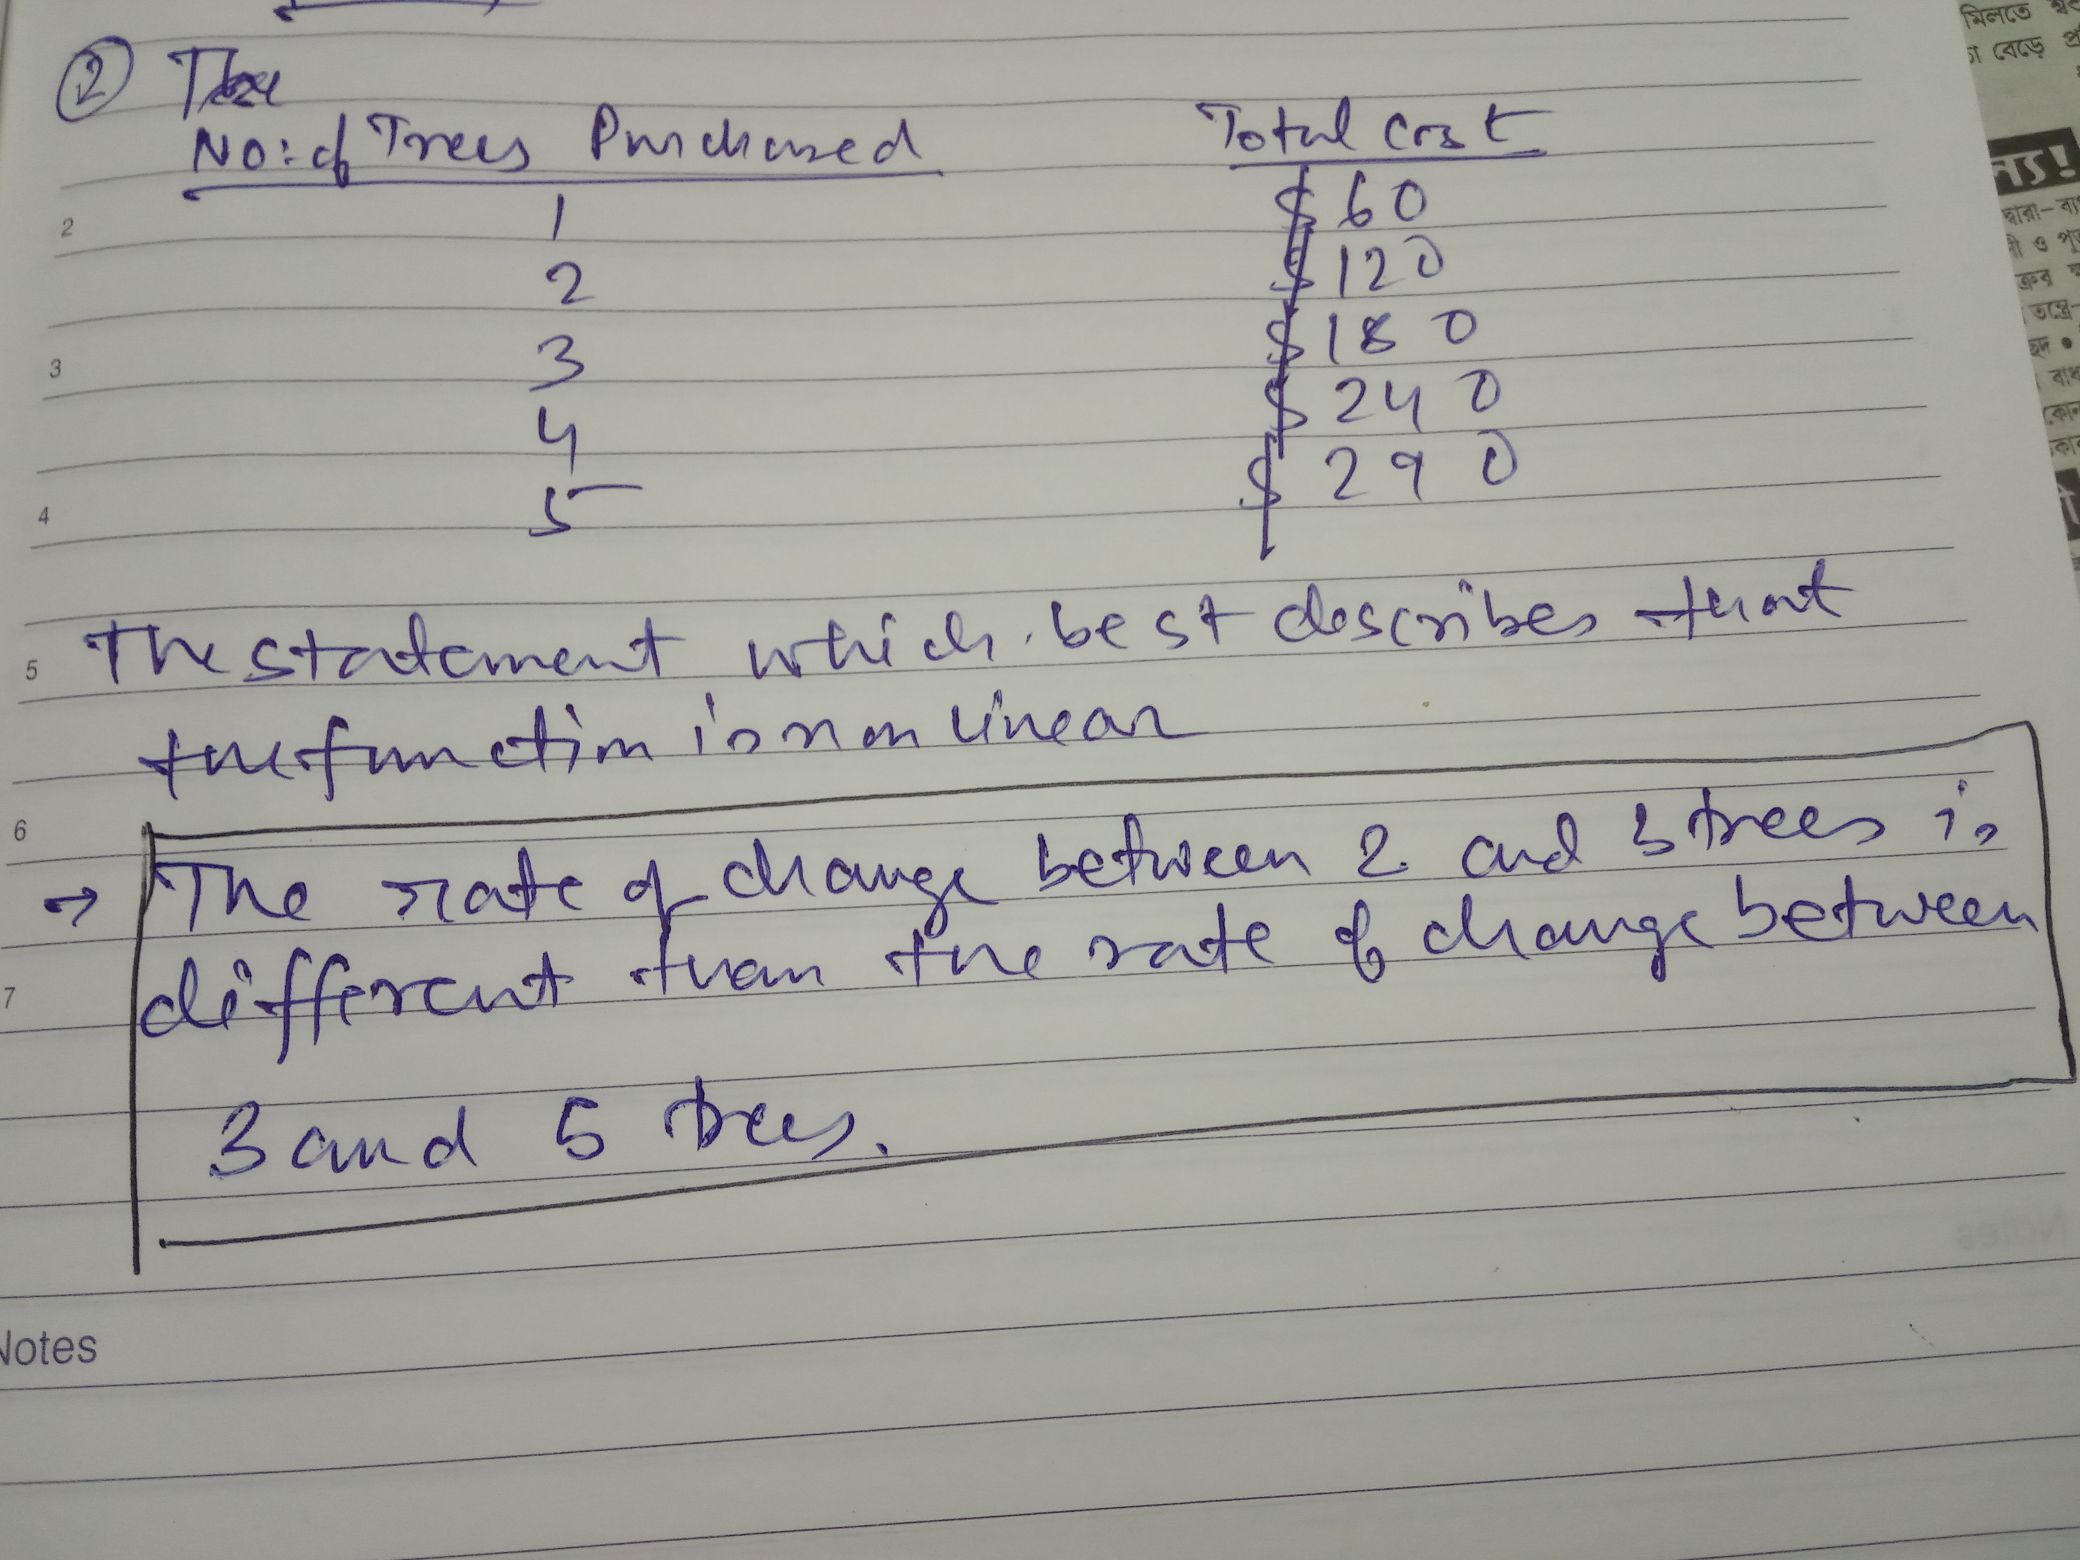 ② The
No: of Trees Purchased Total cost
1 $60
2 $120
3 $180
4 $240
5 $290
The statement which best describes that
the function is non linear
→ The rate of change between 2 and 3 trees is
different than the rate of change between
3 and 5 trees.
2
3
4
5
6
7
Notes
মিলতে
বেড়ে
দ্বারা-
ও
কোন